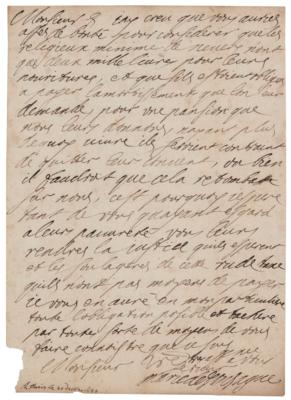 Monsieur Jay creu que vous auriés
asses de bonté pour considerer que les
religieux minime de nevers nont
que deux mille livre pour leurs
nourritures, et que sils estoient obliges
a payer lamortisement que lon leur
demande, pour une pansion que
nous leurs donnons, nayant plus
de quoy vivre ils seroient contraint
de quitter leur couvent, ou bien
il faudroit que cela retombast
sur nous, cest pourquoy jespere
tant de vous quayant esgard
a leur pauvreté vous leurs
rendres la justice quils esperent
et les soulageres de cette rude taxe
quils nont pas moyens de payer
je vous en auré en mon particulier
toute lobligation posible et
par toute sorte de moyens de vous
faire connoistre que je suis
Monsieur